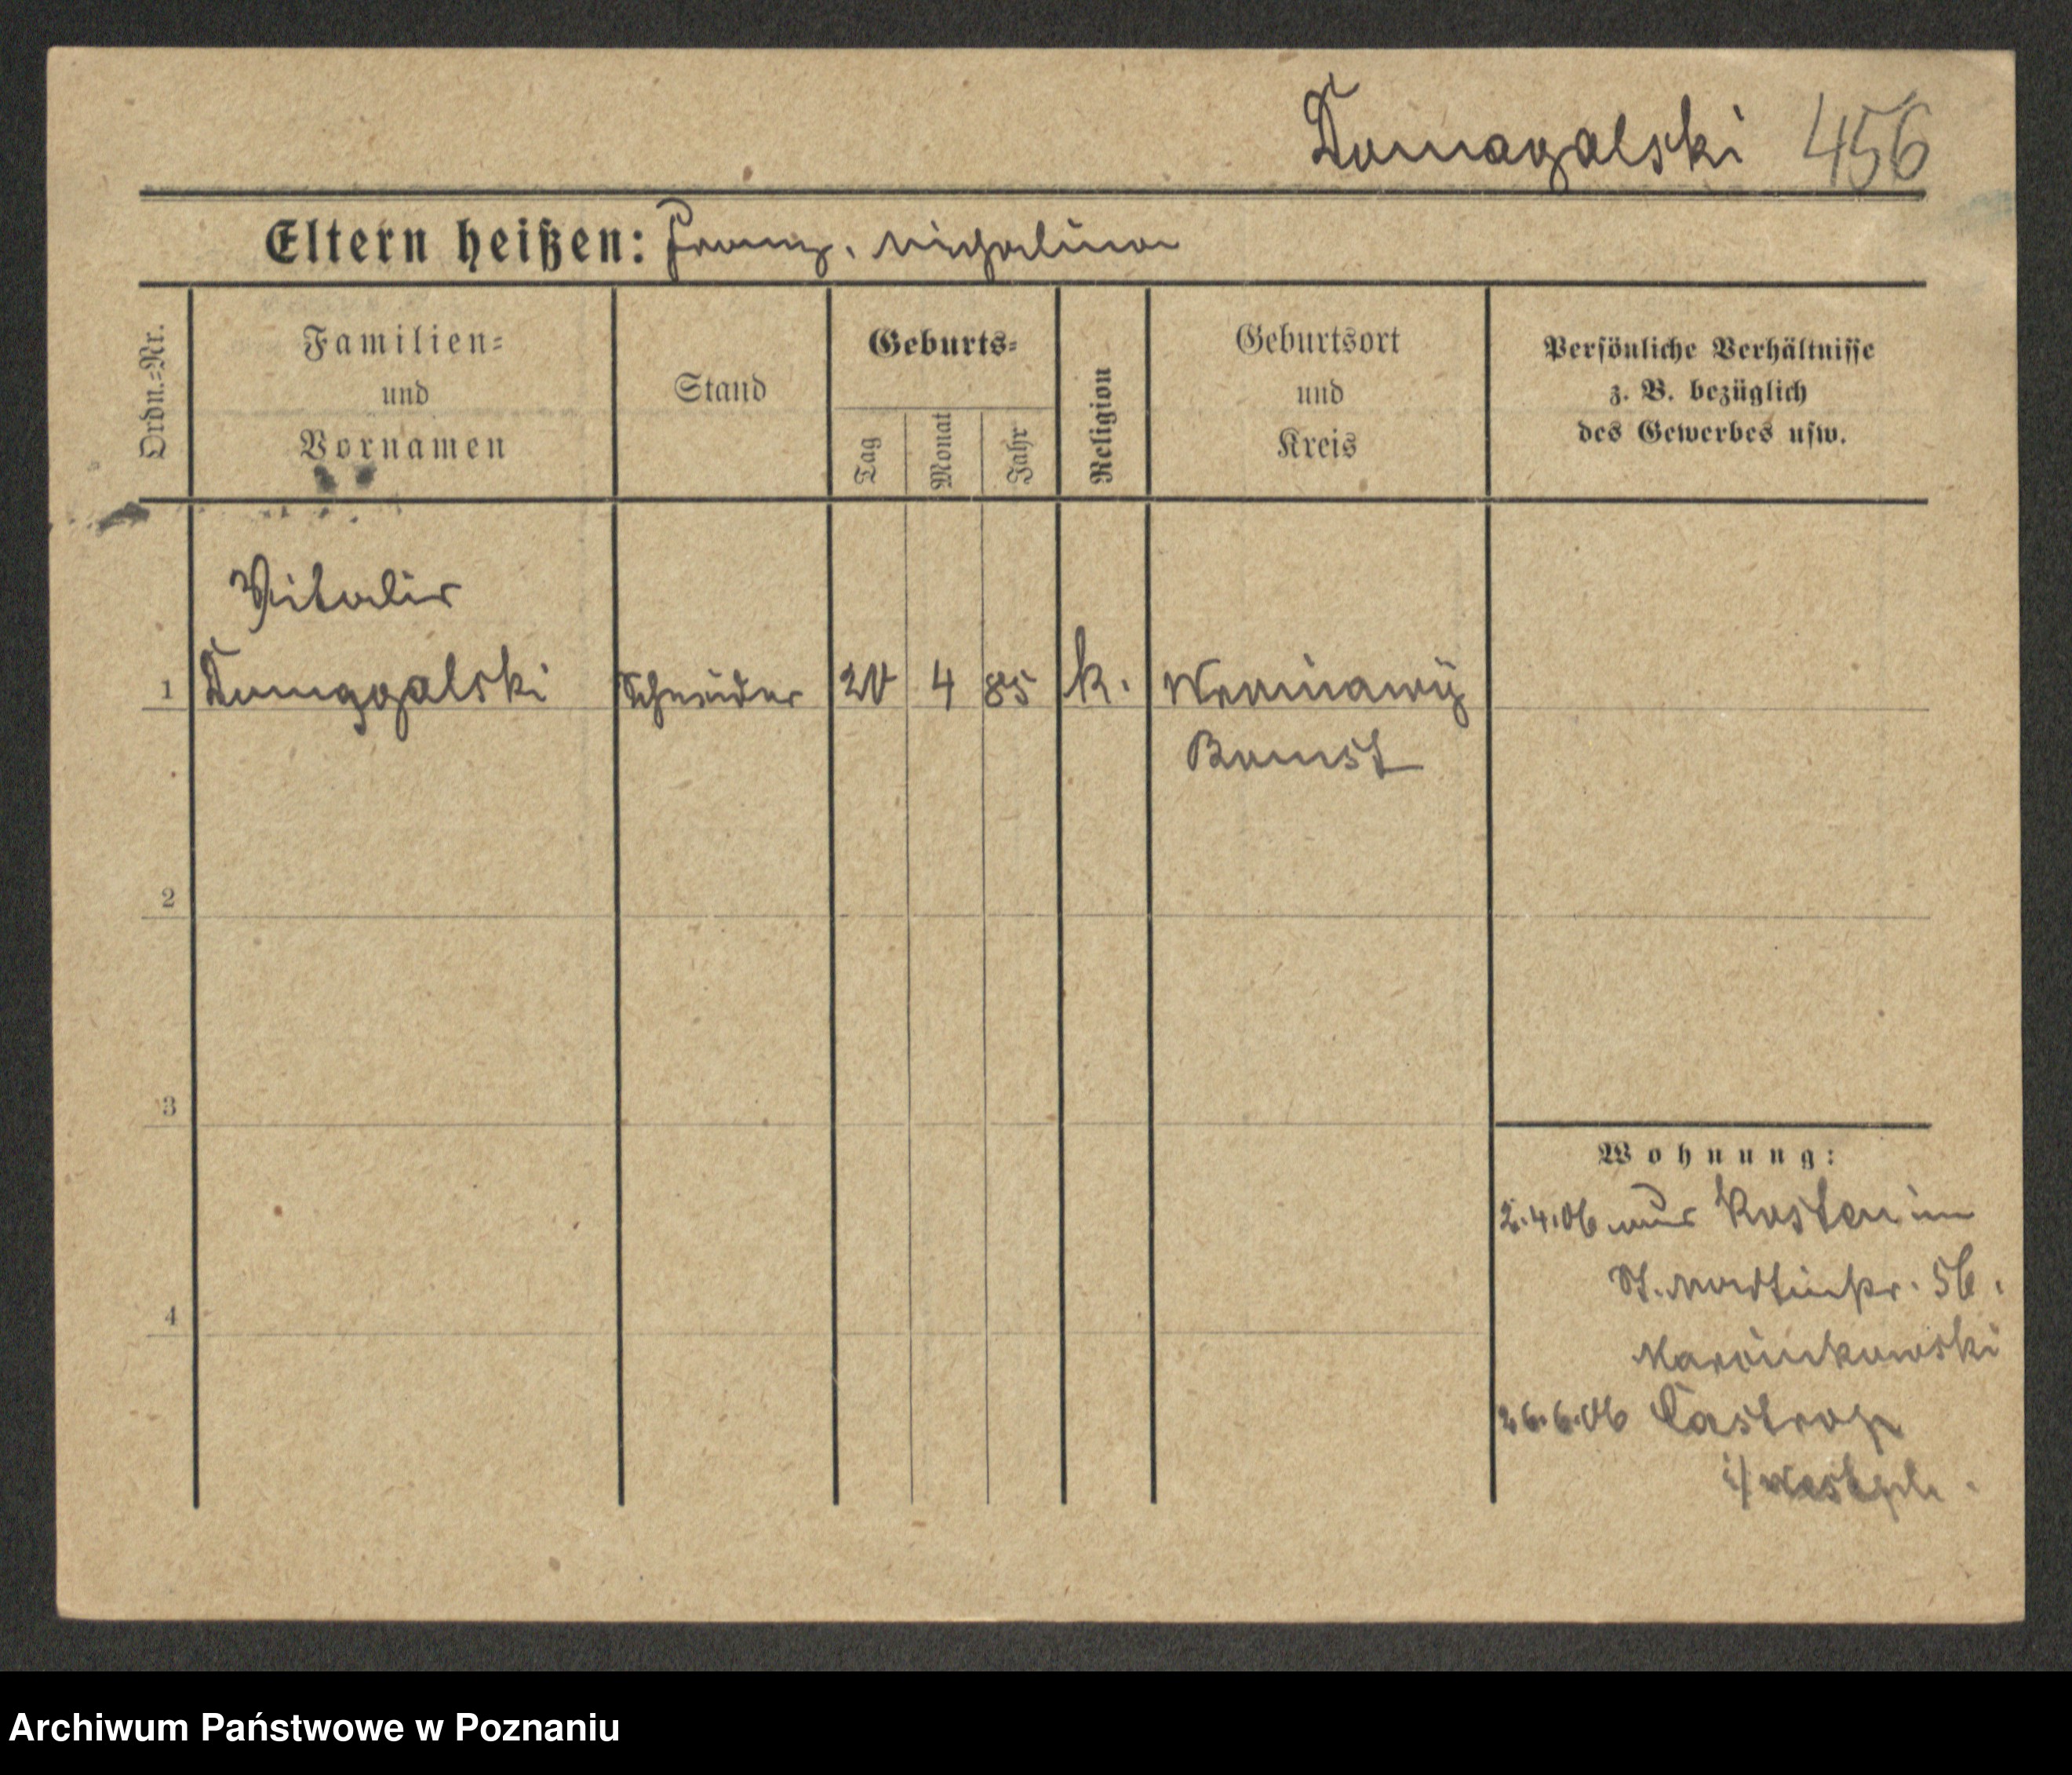 Domagalski 456
Eltern heißen: Franz. Michalina
Ordn.=Nr.
Familien=
und
Vornamen
Stand
Geburts=
Tag
Monat
Jahr
Religion
Geburtsort
und
Kreis
Persönliche Verhältnisse
z. B. bezüglich
des Gewerbes usw.
1
Domagalski Schneider 20 4 85 k.
Bomst
2
3
4
Wohnung:
2.4.06 aus Kosten in
St. Martinstr. 56.
Marcinkowski
26.6.06 Castrop
i/Westph.
Archiwum Państwowe w Poznaniu